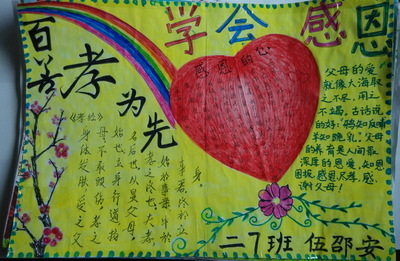 学会感恩
百善孝为先
感恩的心
父母的爱
就像大海取
之不尽，用之
不竭。古话说
的好：鸦知反哺
羊知跪乳。父母
的养育是人间最
深厚的恩爱，知恩
图报，感恩尽孝，感
谢父母！
《孝经》
身体发肤，受之父
母，不敢毁伤，孝之
始也。立身行道，扬
名后世，以显父母，
孝之终也。夫孝，
始於事亲，中於
事君，终於立
身。
二7班 伍邵安